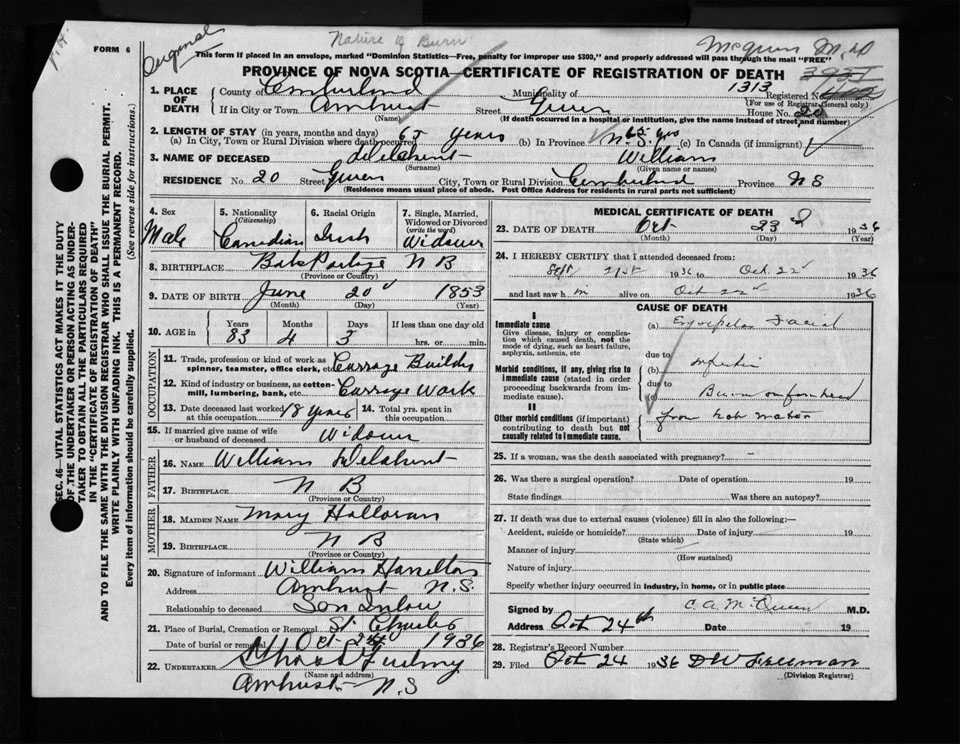 Original
Nature of Burn
McQueen M.D
FORM 6
This form if placed in an envelope, marked "Dominion Statistics—Free, penalty for improper use $300," and properly addressed will pass through the mail "FREE"
PROVINCE OF NOVA SCOTIA—CERTIFICATE OF REGISTRATION OF DEATH
1. PLACE OF DEATH County of Cumberland Municipality of 1313 Registered No.
(For use of Registrar General only)
If in City or Town Amherst Street Queen House No. 20
(Name) (If death occurred in a hospital or institution, give the name instead of street and number)
2. LENGTH OF STAY (in years, months and days)
(a) In City, Town or Rural Division where death occurred 65 years (b) In Province N.S. 65 yrs (c) In Canada (if immigrant)
3. NAME OF DECEASED Delahunt William
(Surname) (Given name or names)
RESIDENCE No. 20 Street Queen City, Town or Rural Division Cumberland Province NS
(Residence means usual place of abode. Post Office Address for residents in rural parts not sufficient)
4. Sex Male
5. Nationality (Citizenship) Canadian
6. Racial Origin Irish
7. Single, Married, Widowed or Divorced (write the word) Widower
8. BIRTHPLACE N B
(Province or Country)
9. DATE OF BIRTH June 20 1853
(Month) (Day) (Year)
10. AGE in Years 83 Months 4 Days 3 If less than one day old hrs. or min.
OCCUPATION
11. Trade, profession or kind of work as spinner, teamster, office clerk, etc. Carrage Builder
12. Kind of industry or business, as cotton-mill, lumbering, bank, etc. Carrage Work
13. Date deceased last worked at this occupation 18 years 14. Total yrs. spent in this occupation
15. If married give name of wife or husband of deceased Widower
FATHER
16. NAME William Delahunt
17. BIRTHPLACE N B
(Province or Country)
MOTHER
18. MAIDEN NAME Mary Halloran
19. BIRTHPLACE N B
(Province or Country)
20. Signature of informant William Hamilton
Address Amherst N.S.
Relationship to deceased Son Inlow
21. Place of Burial, Cremation or Removal St Charles
Date of burial or removal Oct 24 1936
22. UNDERTAKER
(Name and address)
Amherst N.S
MEDICAL CERTIFICATE OF DEATH
23. DATE OF DEATH Oct 23 1936
(Month) (Day) (Year)
24. I HEREBY CERTIFY that I attended deceased from:
Sept 21st 1936 to Oct. 22 1936
and last saw h m alive on Oct 22 1936
CAUSE OF DEATH
I
Immediate cause
Give disease, injury or complication which caused death, not the mode of dying, such as heart failure, asphyxia, asthenia, etc
(a) Erysipelas Facial
due to
Morbid conditions, if any, giving rise to immediate cause (stated in order proceeding backwards from immediate cause).
(b) infection
due to
(c) Burn on forehead
from hot water
II
Other morbid conditions (if important) contributing to death but not causally related to immediate cause.
25. If a woman, was the death associated with pregnancy? -
26. Was there a surgical operation? Date of operation 19
State findings Was there an autopsy?
27. If death was due to external causes (violence) fill in also the following:—
Accident, suicide or homicide? Date of injury 19
(State which)
Manner of injury
(How sustained)
Nature of injury
Specify whether injury occurred in industry, in home, or in public place
Signed by C. A. McQueen M.D.
Address Oct 24th Date 19
28. Registrar's Record Number
29. Filed Oct 24 1936 D W Freeman
(Division Registrar)
SEC. 46—VITAL STATISTICS ACT, MAKES IT THE DUTY OF THE UNDERTAKER OR PERSON ACTING AS UNDERTAKER TO OBTAIN ALL THE PARTICULARS REQUIRED IN THE "CERTIFICATE OF REGISTRATION OF DEATH"
AND TO FILE THE SAME WITH THE DIVISION REGISTRAR WHO SHALL ISSUE THE BURIAL PERMIT.
WRITE PLAINLY WITH UNFADING INK. THIS IS A PERMANENT RECORD.
Every item of information should be carefully supplied. (See reverse side for instructions.)